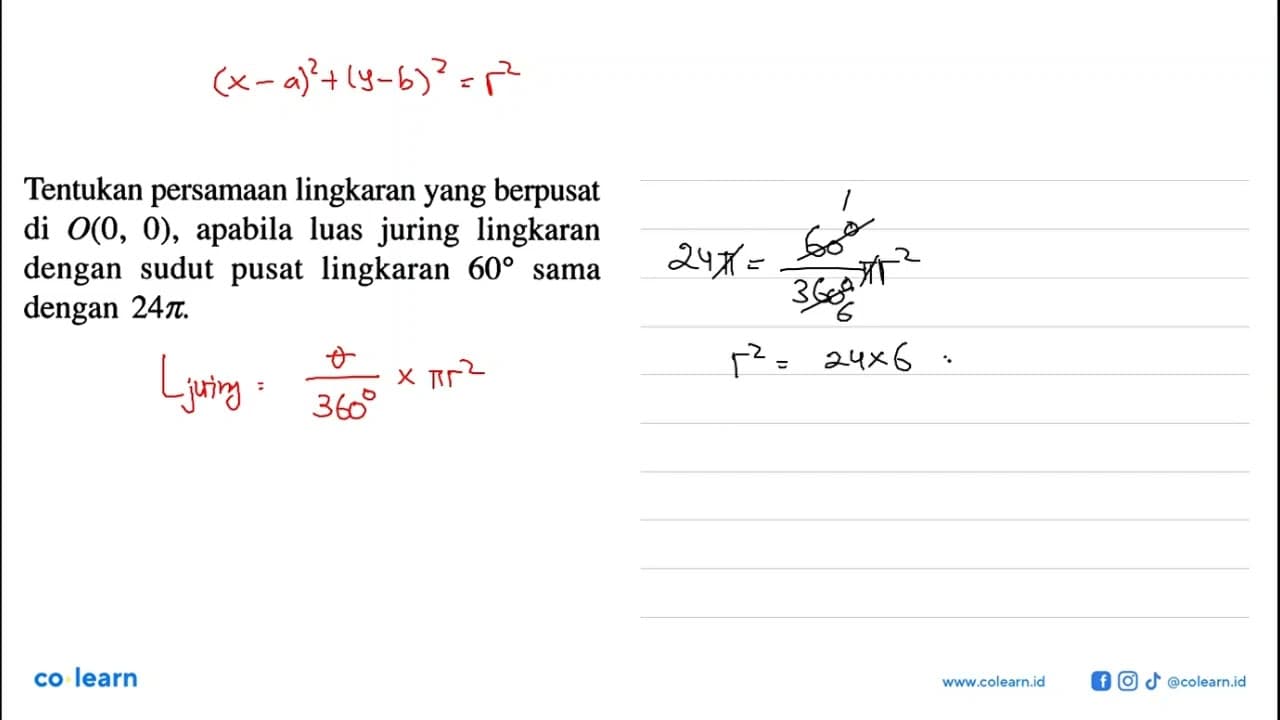 (x-a)²+(y-b)²=r²
Tentukan persamaan lingkaran yang berpusat
di O(0, 0), apabila luas juring lingkaran
dengan sudut pusat lingkaran 60° sama
dengan 24π.
L juring = θ/360° × πr²
1
24π = 60°/360° πr²
6
r² = 24×6
co learn
www.colearn.id
@colearn.id